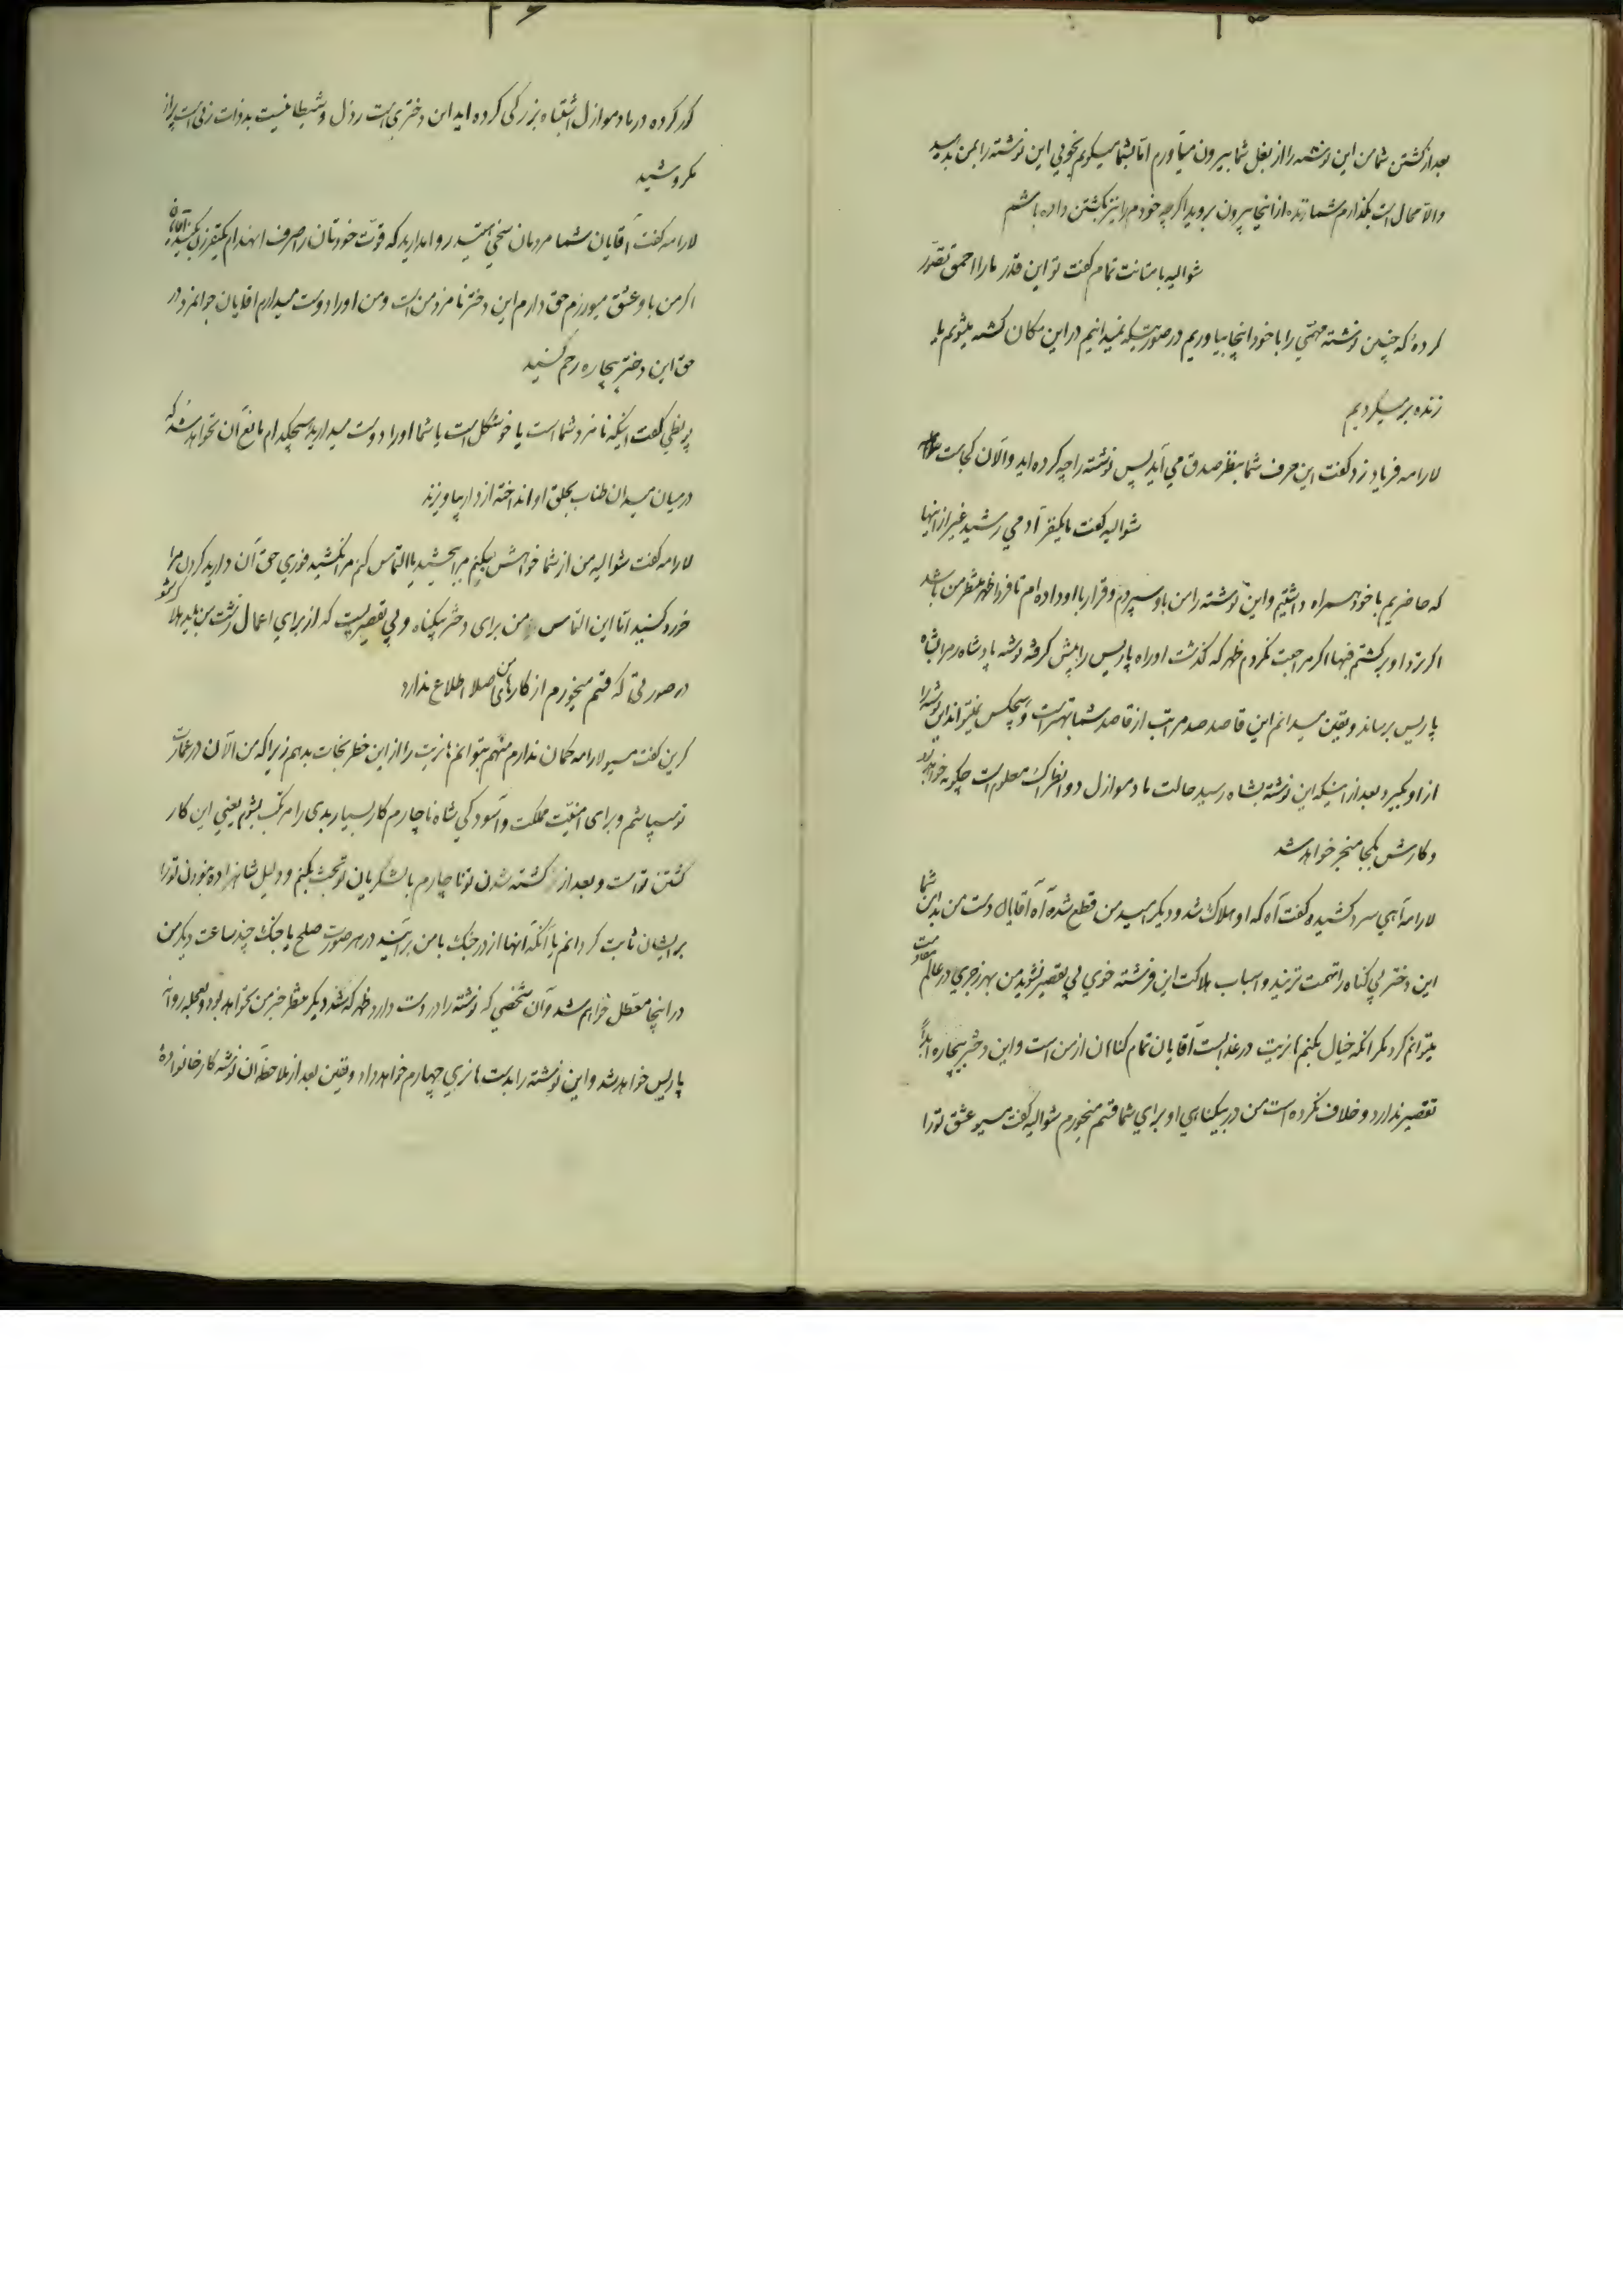 بعد از کشتن شما من این نوشته را از بغل شما بیرون میآورم اما بشما میگویم بخوبی این نوشته را بمن بدهید
والا محال است بگذارم شما زنده از اینجا بیرون بروید اگرچه خودم را نیز بکشتن داده باشم
شوالیه با متانت تمام گفت تو این قدر ما را احمق تصور
کرده که چنین نوشته مهمی را با خود اینجا بیاوریم در صورتیکه نمیدانیم در این مکان کشته میشویم یا
زنده برمیگردیم
لارامه فریاد زد گفت این حرف شما بنظر صدق می آید پس نوشته را چه کرده اید و الآن کجاست
شوالیه گفت ما یکنفر آدمی رشید غیر از اینها
که حاضریم با خود همراه داشتیم و این نوشته را من باو سپردم و قرار با او داده ام تا فردا ظهر منتظر من باشد
اگر نزد او برگشتم فبها اگر مراجعت نکردم ظهر که گذشت او راه پاریس را پیش گرفته نوشته پادشاه را
پاریس برساند و یقین میدانم این قاصد صد مراتب از قاصد شما بهتر است و هیچکس نمیتواند این نوشته را
از او بگیرد بعد از اینکه این نوشته بشاه رسید حالت مادموازل دو معلوم است چگونه خواهد بود
و کارش بکجا منجر خواهد شد
لارامه آهی سرد کشیده گفت آه که او هلاک شد و دیگر امید من قطع شده آه آقایان دست من بدامن شما
این دختر بی گناه را تهمت نزنید و اسباب هلاکت این فرشته خوی بی تقصیر نشوید من بهر زجری در عالم مقاومت
میتوانم کرد مگر آنکه خیال بکنم هانریت در عذابست آقایان تمام گناهان از من است و این دختر بیچاره ابداً
تقصیر ندارد و خلاف نکرده است من در بیگناهی او برای شما قسم میخورم شوالیه گفت مسیو عشق تو را
کور کرده در مادموازل اشتباه بزرگی کرده اید این دختری است رذل و شیطانیست بدذات زنی است پر از
مکر و شید
لارامه گفت آقایان شما مردمان سخی هستید روا مدارید که قوت خودتان را صرف انهدام یکنفر زن بکنید آقایان
اگر من باو عشق میورزم حق دارم این دختر نامزد من است و من او را دوست میدارم آقایان جوانمرد در
حق این دختر بیچاره رحم کنید
گفت اینکه نامزد شما است یا خوشگل است یا شما او را دوست میدارید هیچکدام مانع آن نخواهد شد که
در میان میدان طناب بحلق او انداخته از دار بیاویزند
لارامه گفت شوالیه من از شما خواهش میکنم مرا ببخشید یا التماس کنم مرا نکشید فوری حق آن دارید گردن مرا
خورد کنید اما این التماس من برای دختر بیگناه و بی تقصیریست که از برای اعمال زشت من باید هلاک شود
در صورتی که قسم میخورم از کارهای من اصلا اطلاع ندارد
کرین گفت مسیو لارامه گمان ندارم منهم بتوانم هانریت را از این خطر نجات بدهم زیرا که من الآن در عمارت
تو میباشم و برای امنیت مملکت و آسودگی شاه ناچارم کار بسیار بدی را مرتکب بشوم یعنی این کار
کشتن تو است و بعد از کشته شدن تو ناچارم با لشگریان تو بحث بکنم و دلیل شاهزاده نبودن تو را
بر ایشان ثابت گردانم یا آنکه آنها از در جنگ با من برآیند در هر صورت صلح یا جنگ چند ساعت دیگر من
در اینجا معطل خواهم شد و آن شخصی که نوشته را در دست دارد ظهر که شد دیگر منتظر خبر من نخواهد بود و بعجله روانه
پاریس خواهد شد و این نوشته را بدست هانری چهارم خواهد داد و یقین بعد از ملاحظه آن نوشته کار خانواده